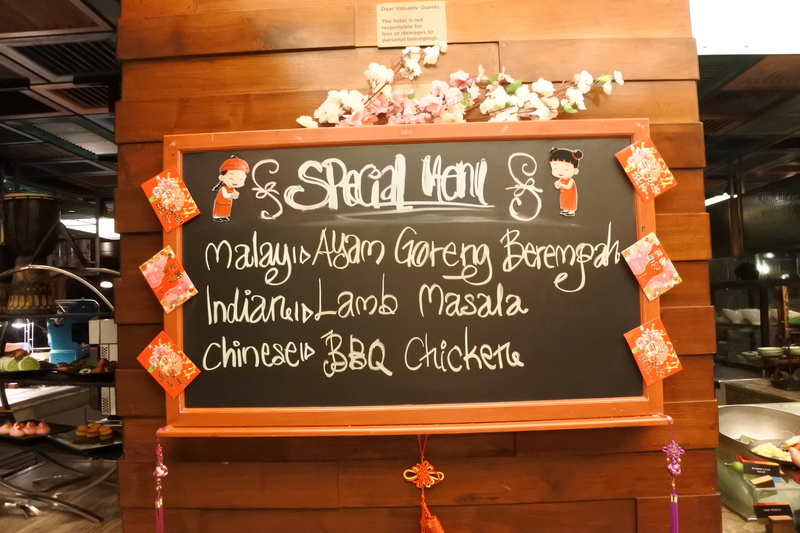 Dear Valuable Guests,
The hotel is not
responsible for
loss or damages to
personal belongings.
Special Menu
Malay Ayam Goreng Berempah
Indian Lamb Masala
Chinese BBQ Chicken